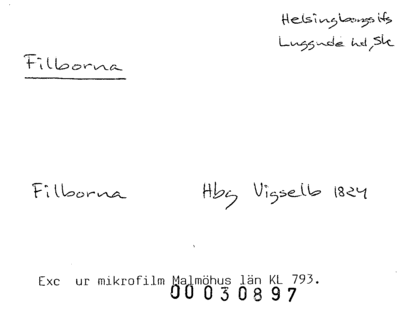 Helsingborgs lfs
Luggude hd, Sk
Filborna
Filborna Hbg Vigselb 1824
Exc ur mikrofilm Malmöhus län KL 793.
00030897